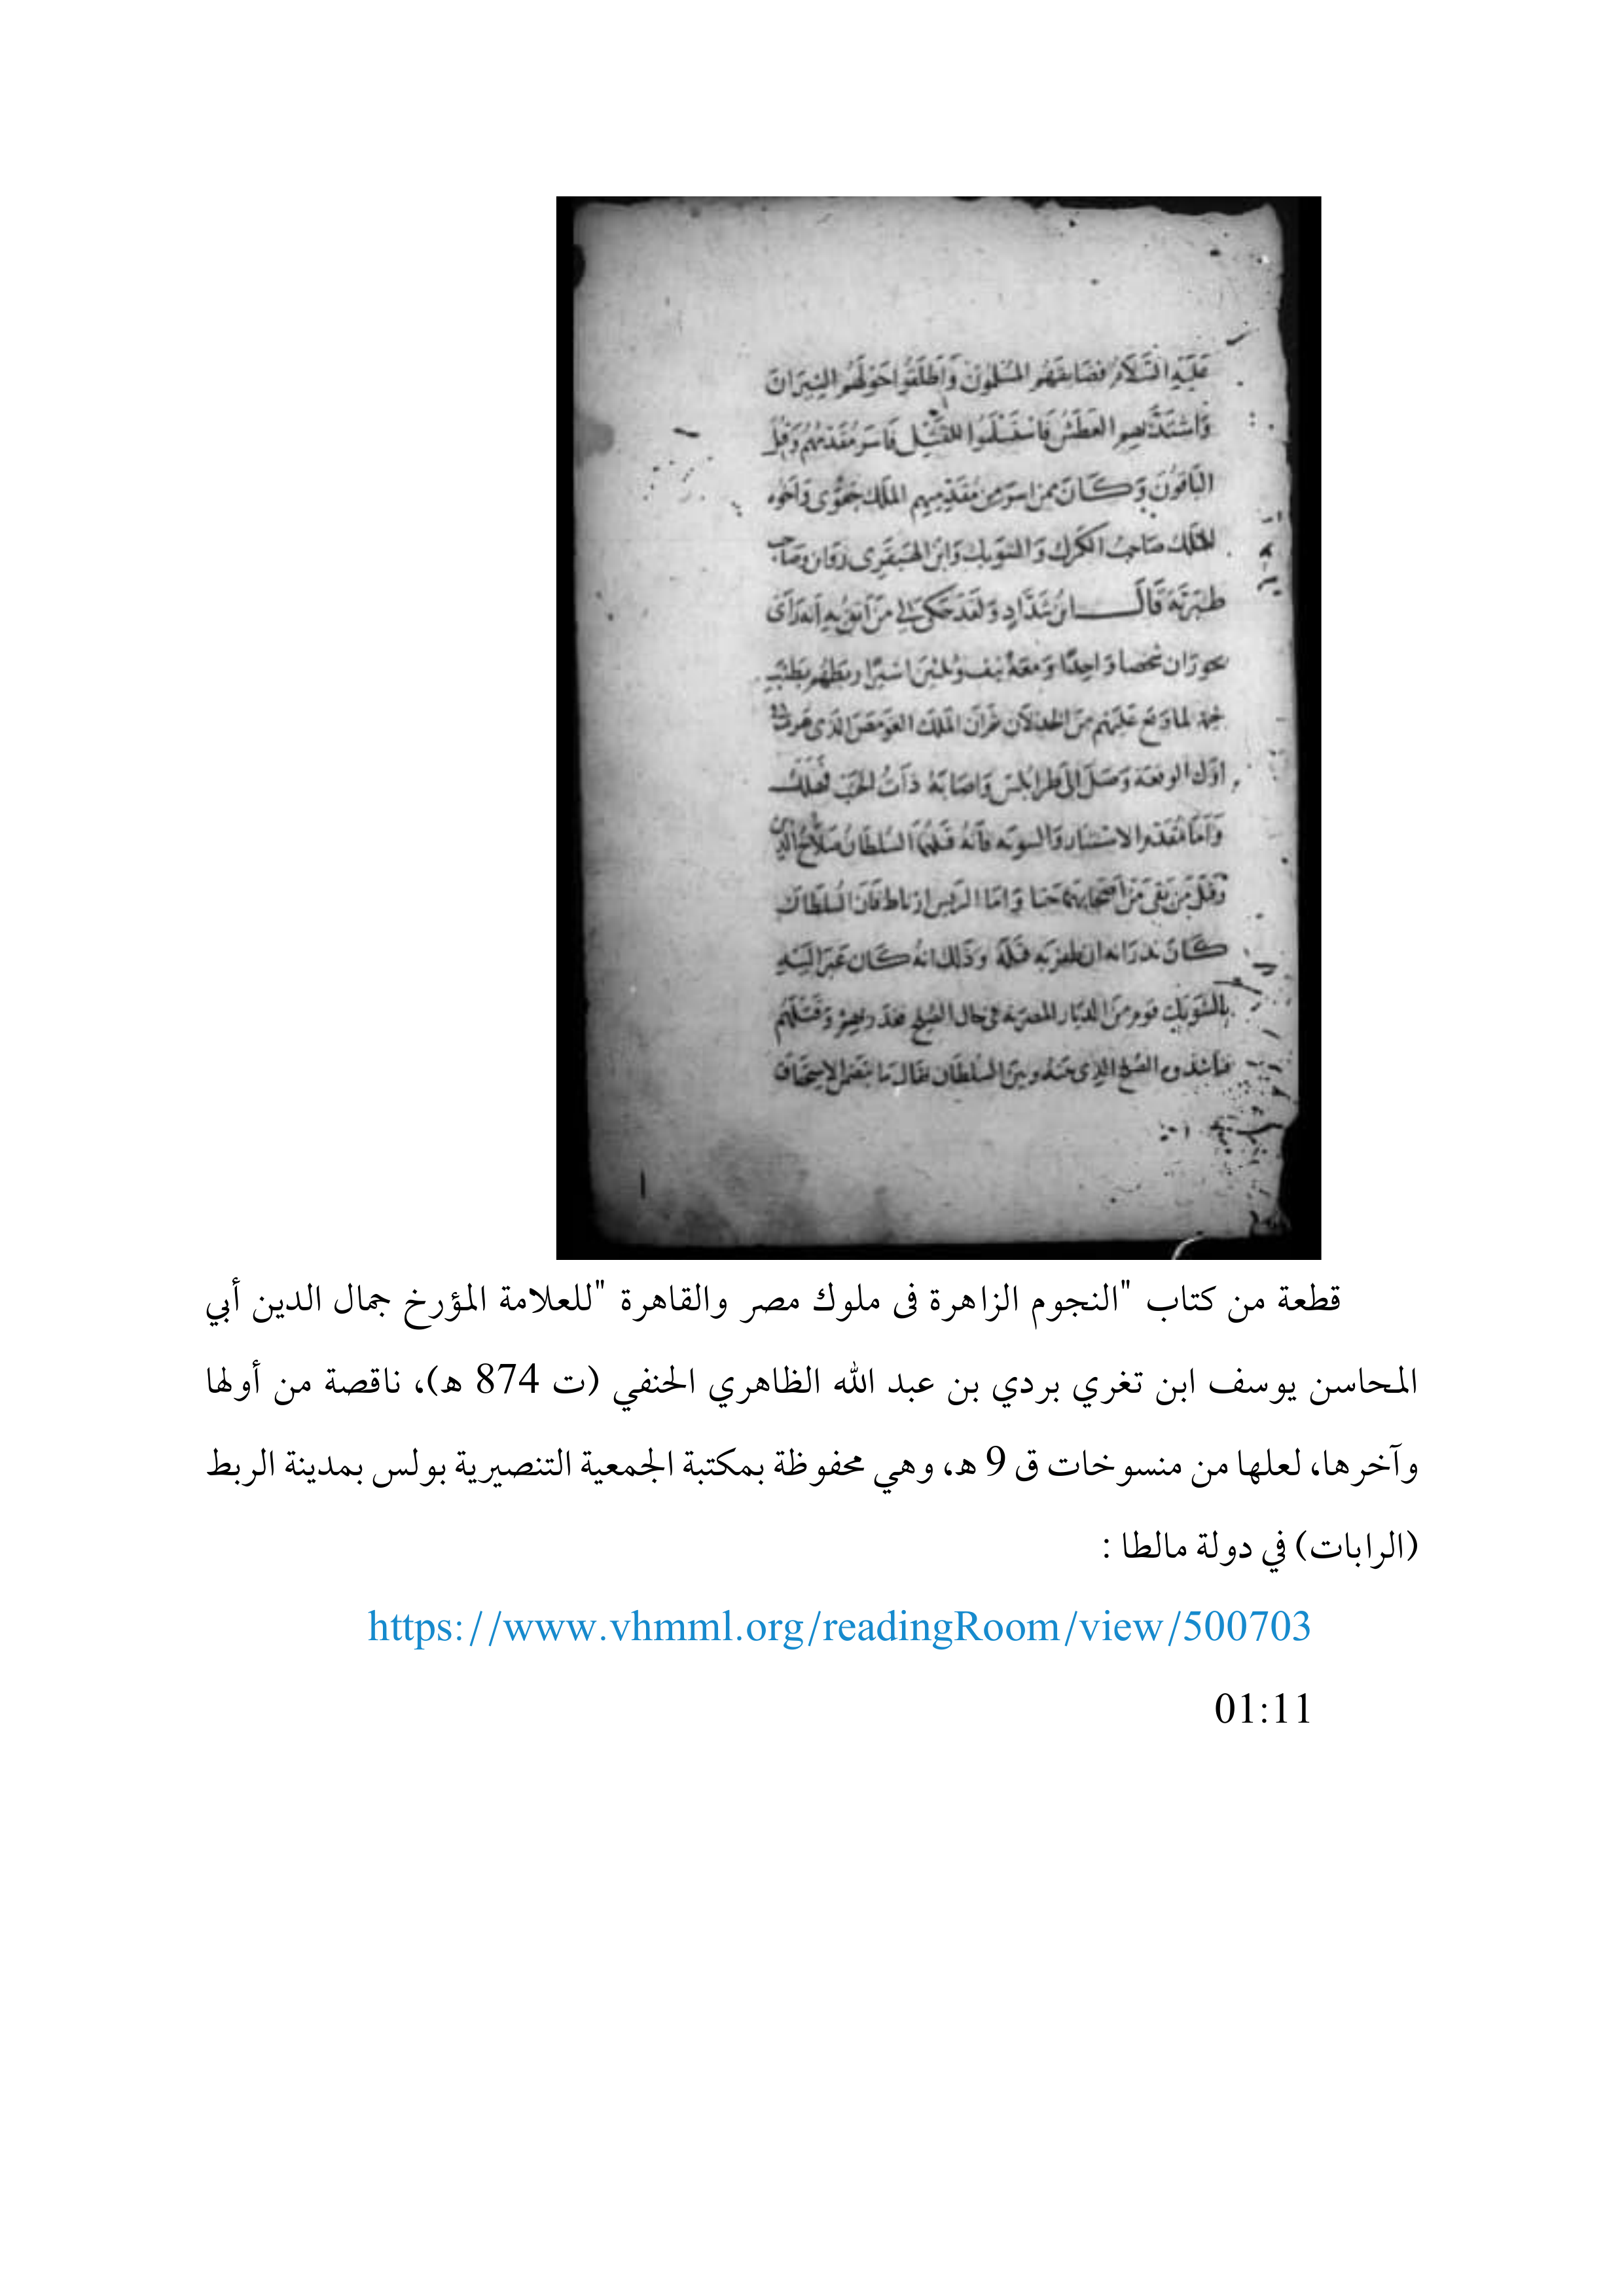 عَلَيْهِ السَّلَامُ فضَايقَهُم المُسْلِمُونَ وَأَطْلَقُوا حَوْلَهُم النِيرَان
وَاشتَدَّ بهم العَطَشُ فَاسْتَسْلَمُوا للقَتْل فَاسَر مُقَدمُهُم وَقُتِل
البَاقُونَ وَكَانَ ممن اسر من مُقَدميهم الملك جفرى وَاخُوه
الملك صَاحِبُ الكَرك وَالشَوبك وَابْن الهنفرى وصَاحب
طبَرِيَّة قَالَ ابنُ شَدَّادٍ وَلَقَدْ حَكَى لي مَن أثق به أَنه رَأَى
بحوران شخصا وَاحِدًا وَمعَهُ نيف وثلثين اسيرًا ربطهُم بطنب
خيمة لما وَقع عَلَيْهِم مِنَ الخذلان ثم ان الملك القومص الذى هَرب فى
اوّل الوقعَة وَصَلَ إلى طرابلس وَاصَابَهُ ذَاتُ الجَنب فهَلك
وَأمَا مُقَدم الاستبار والديوية فَانَّهُ قَتَلهُمَا السُلطَانُ صَلَاحُ الدين
وَقتل مَن بَقى مِن أصحَابِهمَا وَامَا البرنس ارناط فَان السُلطَان
كَان نذر انه ان ظفر به قتله وَذَلك انهُ كَان عَبَر إليه
بالشوبك قوم مِن الديَار المصريه فى حَال الصُلح فغدر بهم وَقَتَلَهُم
فناشدوه الصُلح الذى بَينهُ وبين السُلطان فقال مَا يتضمن الاستخفَاف
قطعة من كتاب "النجوم الزاهرة فى ملوك مصر والقاهرة "للعلامة المؤرخ جمال الدين أبي
المحاسن يوسف ابن تغري بردي بن عبد الله الظاهري الحنفي (ت 874 ه)، ناقصة من أولها
وآخرها، لعلها من منسوخات ق 9 ه، وهي محفوظة بمكتبة الجمعية التنصيرية بولس بمدينة الربط
(الرابات) في دولة مالطا :
https://www.vhmml.org/readingRoom/view/500703
01:11